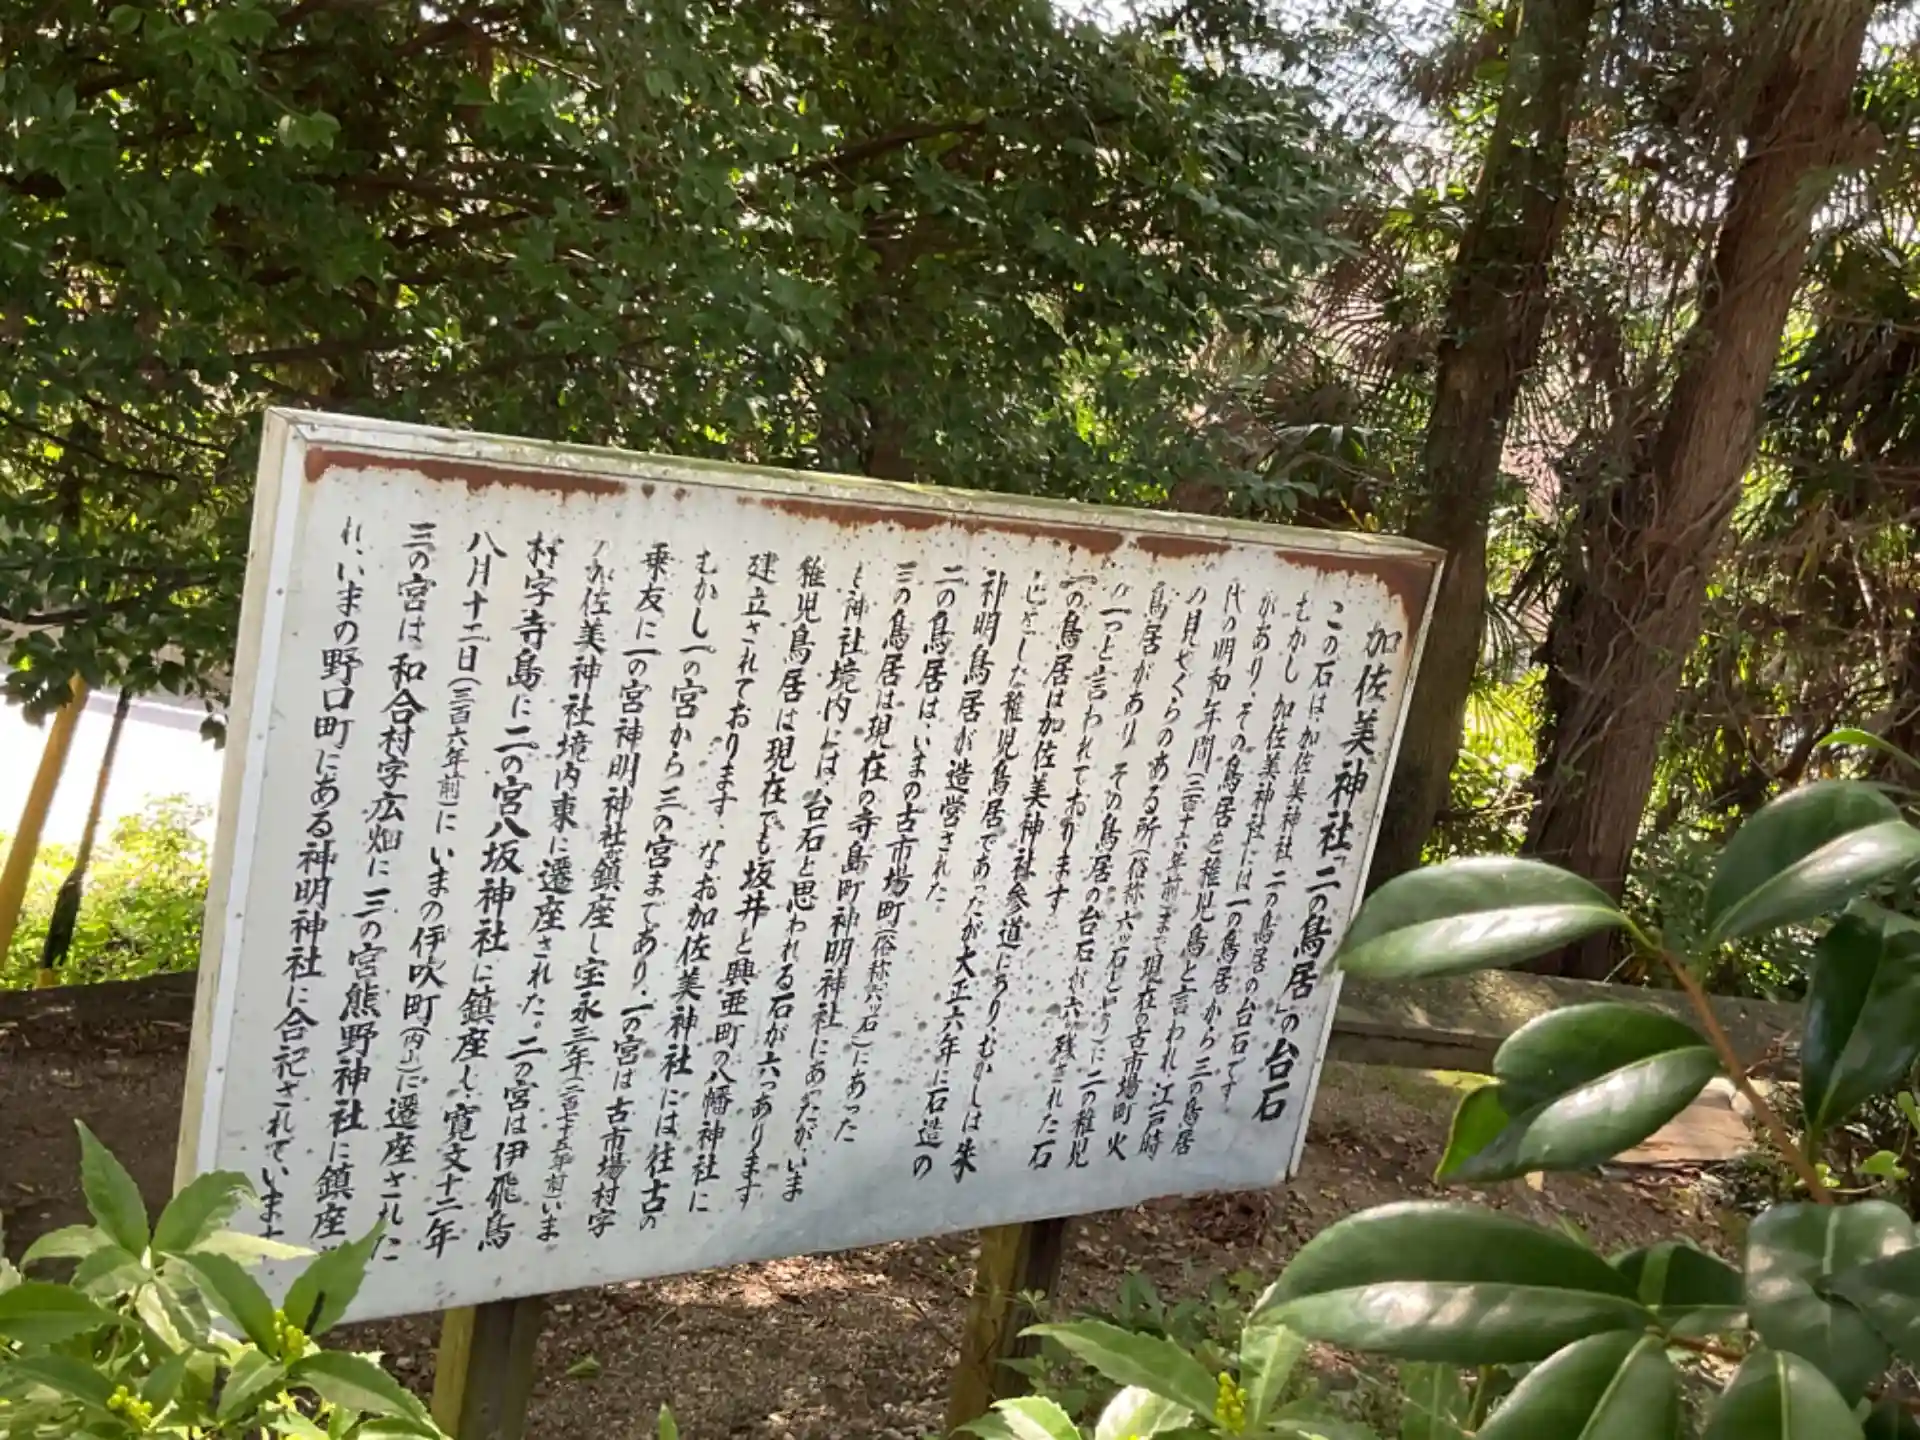 加佐美神社「二の鳥居」の台石
この石は、加佐美神社 二の鳥居の台石です
むかし 加佐美神社には一の鳥居から三の鳥居
があり、その鳥居を稚児鳥居と言われ 江戸時
代の明和年間(二百十六年前)まで現在の古市場町火
の見やぐらのある所(俗称六ッ石という)に二の稚児
鳥居があり その鳥居の台石が六ッ残された石
の一つと言われております
一の鳥居は加佐美神社参道にあり、むかしは朱
色をした稚児鳥居であったが大正六年に石造の
神明鳥居が造営された
二の鳥居は、いまの古市場町(俗称六ッ石)にあった
三の鳥居は現在の寺島町神明神社にあったが、いま
も神社境内には、台石と思われる石が六つあります
稚児鳥居は現在でも坂井と興亜町の八幡神社に
建立されております
むかし一の宮から三の宮まであり、一の宮は古市場村字
乗友に一の宮神明神社が鎮座し宝永三年(二百七十五年前)いま
の加佐美神社境内東に遷座された。二の宮は伊飛島
村字寺島に二の宮八坂神社に鎮座し、寛文十二年
八月十二日(三百六年前)にいまの伊吹町(内山)に遷座された
三の宮は和合村字広畑に三の宮熊野神社に鎮座
れ、いまの野口町にある神明神社に合祀されています